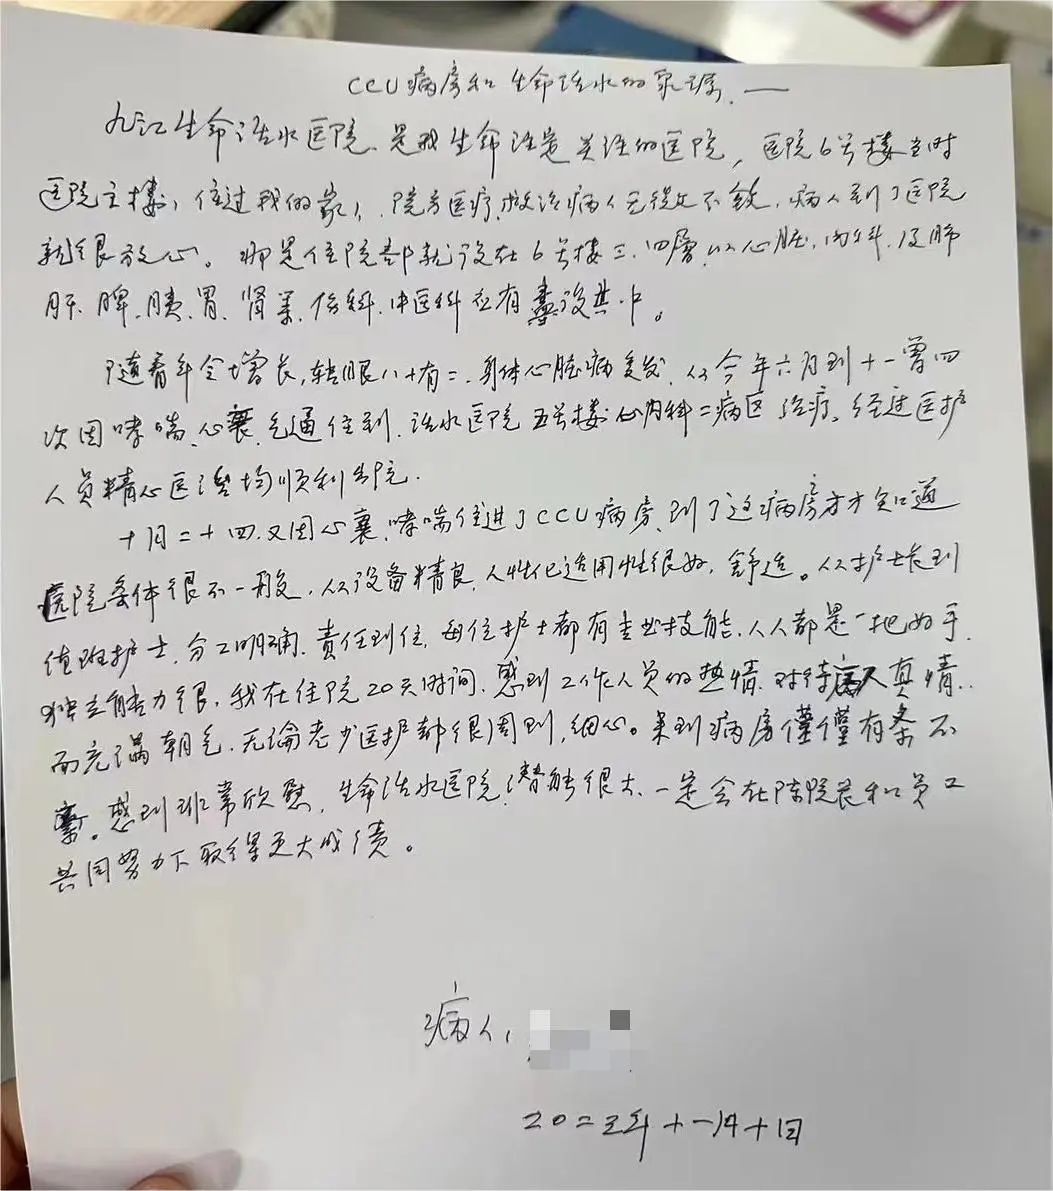 CCU病房和生命活水的亲谔.——
九江生命活水医院、是我生命注定关注的医院，医院6号楼当时
医院主楼，住过我的家人、院方医疗、救治病人无微不致，病人到了医院
就很放心。那是住院部就设在6号楼三、四层，以心脏，内科，及肺
肝、脾、胰、胃、肾等、伤科、中医科应有设其中。
随着年令增长，转眼八十有二、身体心脏病复发，从今年六月到十一曾四
次因哮喘、心衰、气通住到、活水医院五号楼心内科二病区治疗，经过医护
人员精心医治均顺利出院.
十月二十四又因心衰、哮喘住进了CCU病房、到了这病房才才知道
医院条体很不一般，从设备精良，人性化适用性很好，舒适。从护士长到
值班护士、分工明确、责任到位，每位护士都有专业技能，人人都是一把好手，
独立能力很，我在住院20天时间，感到工作人员的热情，对待病人真情..
而充满朝气，无论老少医护都很周到，细心。来到病房僅僅有条不
紊。感到非常欣慰，生命活水医院，潜能很大、一定会在陈院长和员工
共同努力下取得更大成绩。
病人：
20二三年十一月十日